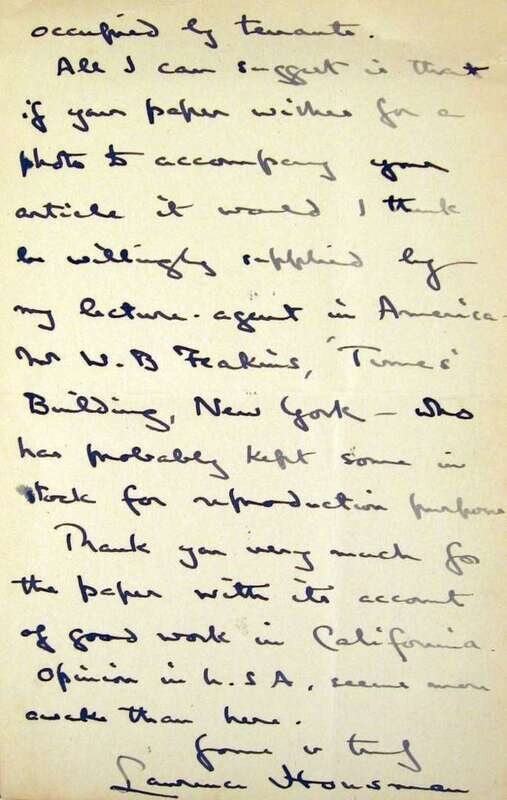 occupied by tenants.
All I can suggest is that
if your paper wishes for a
photo to accompany your
article it would I think
be willingly supplied by
my lecture-agent in America -
Mr W. B Feakins, 'Times'
Building, New York - who
has probably kept some in
stock for reproduction purposes
Thank you very much for
the paper with its account
of good work in California.
Opinion in U.S.A. seems more
awake than here.
Yours v. truly
Laurence Housman